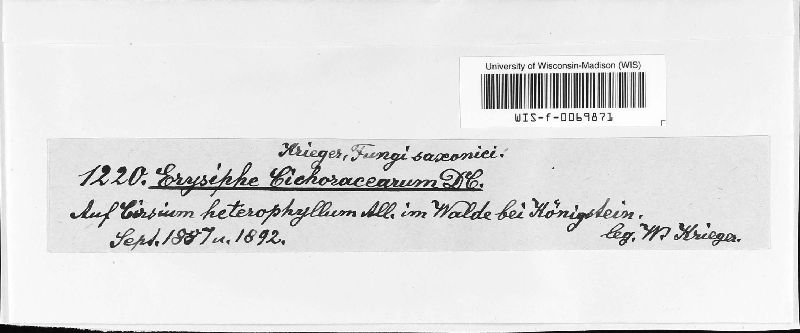 University of Wisconsin-Madison (WIS)
WIS-f-0069871
Krieger, Fungi saxonici.
1220. Erysiphe Cichoracearum DC.
Auf Cirsium heterophyllum All. im Walde bei Königstein.
Sept. 1887 u. 1892.
leg. W. Krieger.